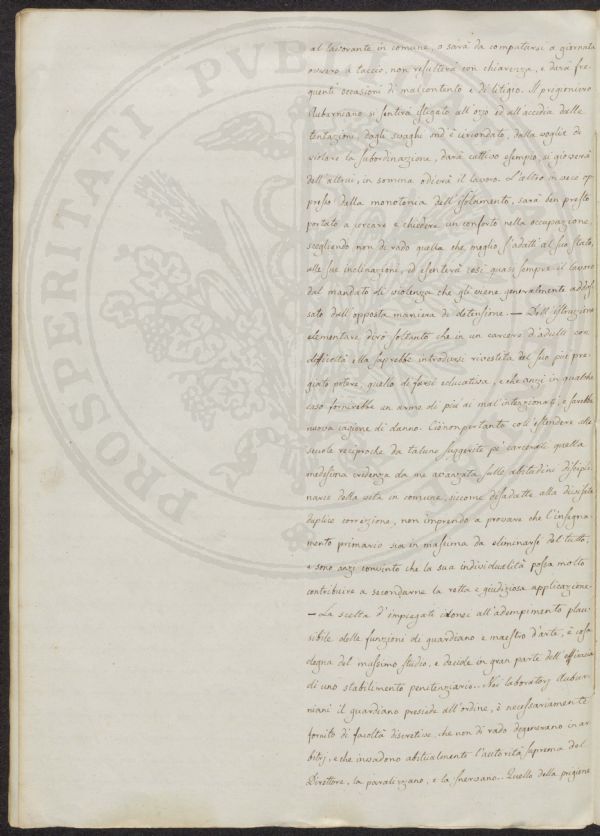 al lavorante in comune, o sarà da computarsi a giornata
ovvero a taccio, non resulterà con chiarezza, e darà fre
quenti occasioni di malcontento e di litigio. Il prigioniero
Auburniano si sentirà istigato all'ozio ed all'accidia dalle
tentazioni, dagli svaghi ond'è circondato, dalla voglia di
violare la subordinazione, darà cattivo esempio, si gioverà
dell'altrui, in somma odierà il lavoro. L'altro invece op
presso dalla monotonia dell'isolamento, sarà ben presto
portato a cercare e chiedere un conforto nella occupazione,
scegliendo non di rado quella che meglio s'adatti al suo stato,
alle sue inclinazioni, ed esenterà così quasi sempre il lavoro
dal mandato di violenza che gli viene generalmente addos
sato dall'opposta maniera di detensione. — Dell'istruzione
elementare dirò soltanto che in un carcere d'adulti con
difficoltà ella saprebbe introdursi rivestita del suo più pre
giato potere, quello di farsi educativa, e che anzi in qualche
caso fornirebbe un'arme di più ai mal'intenzionati, e sarebbe
nuova cagione di danno. Ciònonpertanto coll'estendere alle
scuole reciproche da taluno suggerite pe' carcerati quella
medesima credenza da me avanzata sulle abitudini discipli
narie della vita in comune, siccome disadatte alla divisata
duplice correzione, non imprendo a provare che l'insegna
mento primario sia in massima da eliminarsi del tutto,
e sono anzi convinto che la sua individualità possa molto
contribuire a secondarne la retta e giudiziosa applicazione.
— La scelta d'impiegati idonei all'adempimento plau
sibile delle funzioni di guardiano e maestro d'arte, è cosa
degna del massimo studio, e decide in gran parte dell'efficacia
di uno stabilimento penitenziario. Nei laboratorj Aubur
niani il guardiano presiede all'ordine, è necessariamente
fornito di facoltà discretive, che non di rado degenerano in ar
bitrj, e che invadono abitualmente l'autorità suprema del
Direttore, la paralizzano, e la snervano. Quello della prigione
PROSPERITATI PVBLICAE